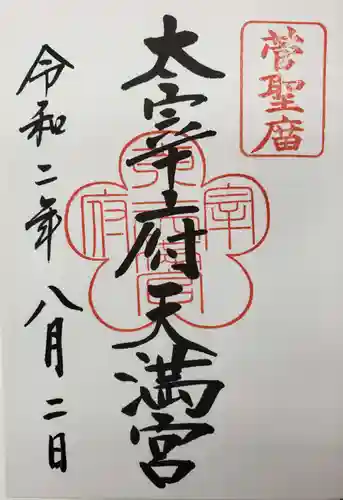 菅聖廟
太宰府天満宮
令和二年八月二日